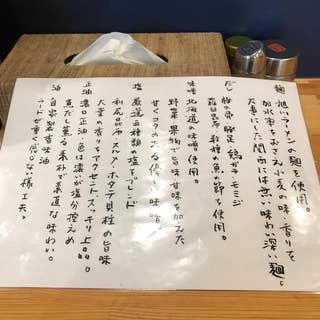 麺 旭川ラーメンの麺を使用。
加水率をおさえ小麦の味、香りを
大事にした関西には無い味わい深い麺。
だし 豚の骨、豚足、鶏ガラ、モミジ
羅臼昆布、和種の魚の節を使用。
味噌 北海道の味噌を使用。
野菜、果物で旨味、甘味を加えた
甘くコクのある優しい味噌。
塩 厳選五種類の塩をブレンド
利尻昆布、スルメ、ホタテ貝柱の旨味
大葉の香りをアクセントにスッキリ上品。
正油 濃口正油、色は濃いが塩分控えめ
魚だし薫る素朴で素直な味わい。
油 自家製香味油
ラードが重く感じない様工夫。